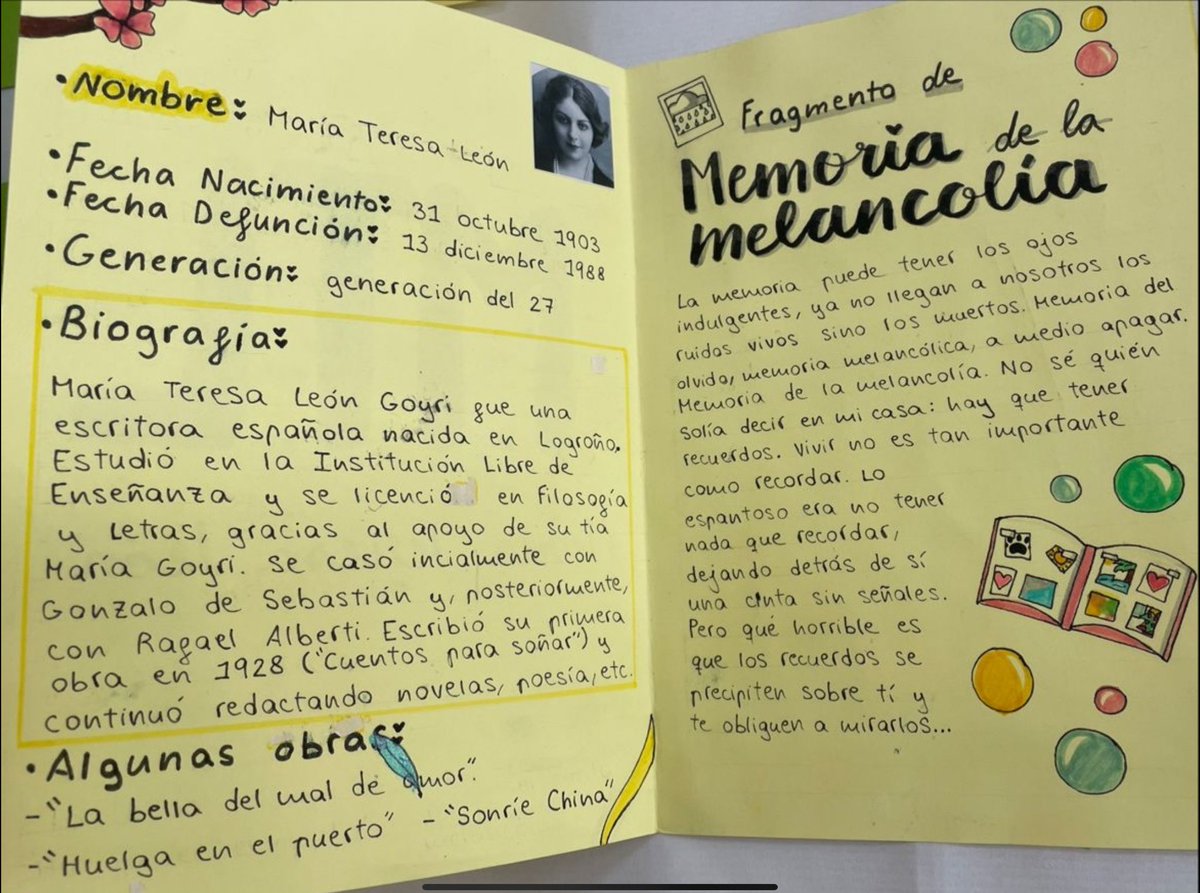 • Nombre:
María Teresa León
• Fecha Nacimiento: 31 octubre 1903
• Fecha Defunción: 13 diciembre 1988
• Generación: generación del 27
• Biografía:
María Teresa León Goyri fue una
escritora española nacida en Logroño.
Estudió en la Institución Libre de
Enseñanza y se licenció en Filosofía
y Letras, gracias al apoyo de su tía
María Goyri. Se casó incialmente con
Gonzalo de Sebastián y, posteriormente,
con Rafael Alberti. Escribió su primera
obra en 1928 ("Cuentos para soñar") y
continuó redactando novelas, poesía, etc.
• Algunas obras:
-"La bella del mal de amor".
-"Huelga en el puerto" -"Sonríe China"
Fragmento de
Memoria de la
melancolía
La memoria puede tener los ojos
indulgentes, ya no llegan a nosotros los
ruidos vivos sino los muertos. Memoria del
olvido, memoria melancólica, a medio apagar.
Memoria de la melancolía. No sé quién
solía decir en mi casa: hay que tener
recuerdos. Vivir no es tan importante
como recordar. Lo
espantoso era no tener
nada que recordar,
dejando detrás de sí
una cinta sin señales.
Pero qué horrible es
que los recuerdos se
precipiten sobre tí y
te obliguen a mirarlos...